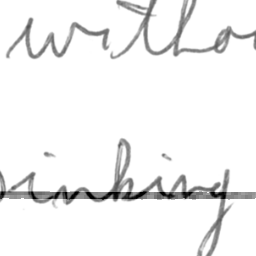 witho
inking